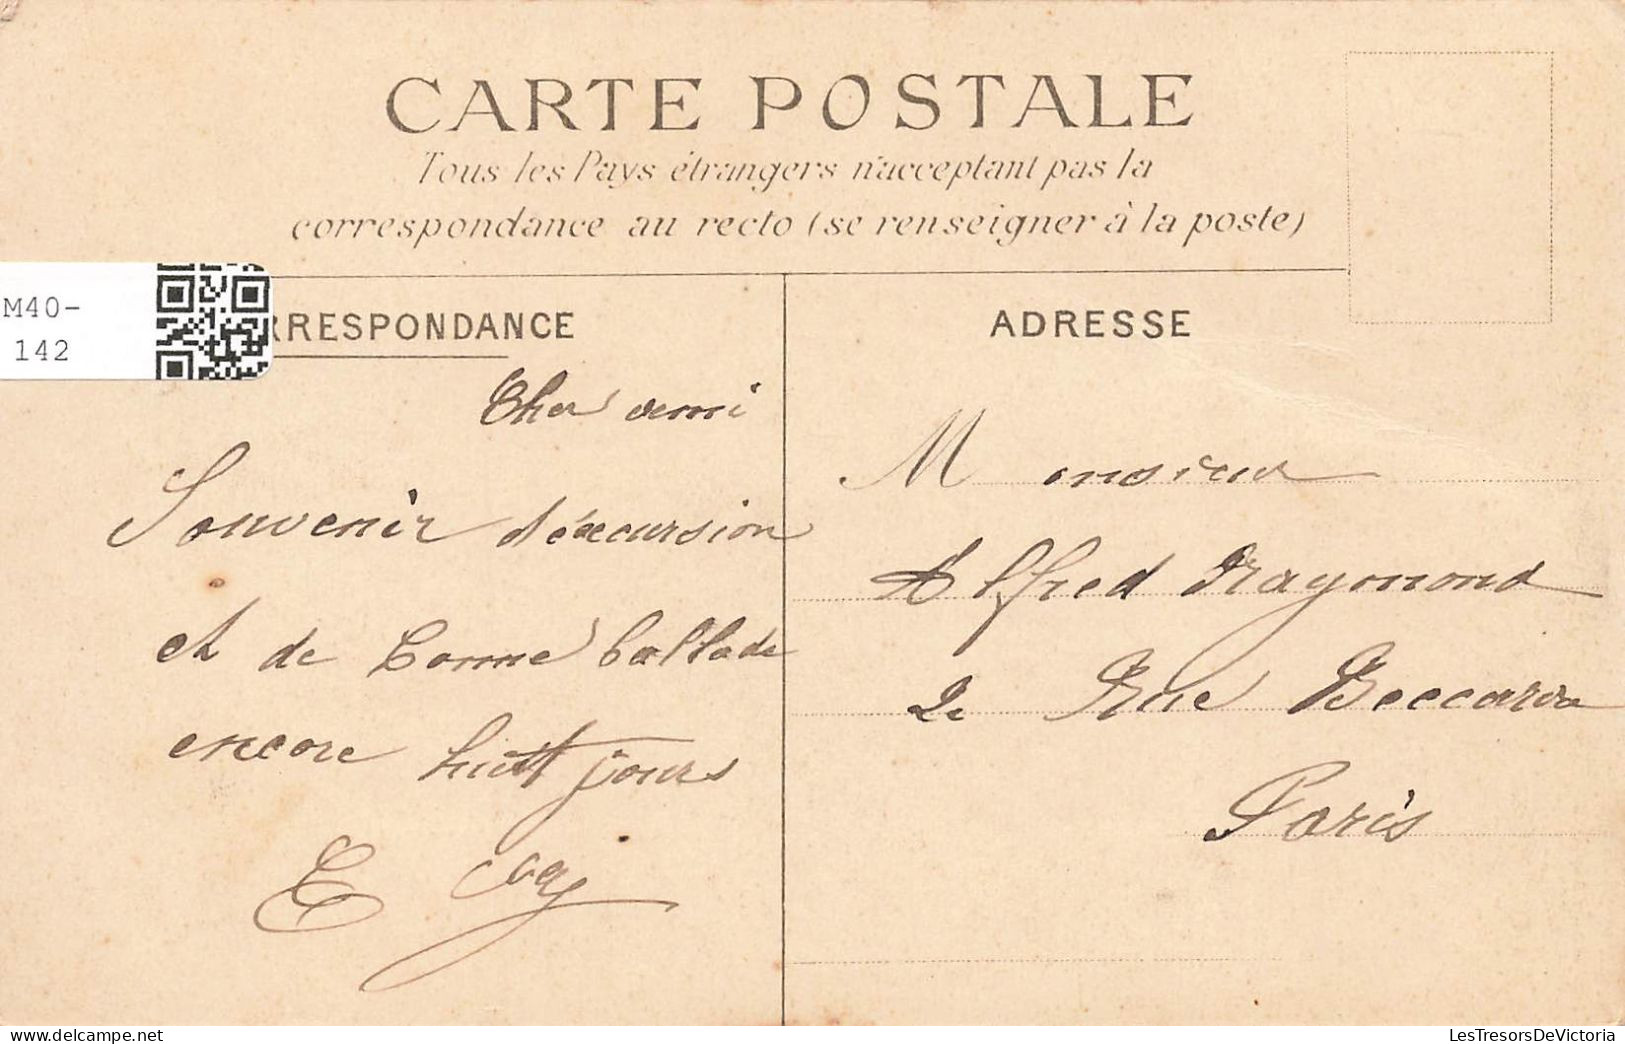 CARTE POSTALE
Tous les Pays étrangers n'acceptant pas la
correspondance au recto (se renseigner à la poste)
M40-
142
RRESPONDANCE
ADRESSE
Cher ami
Souvenir d'éxcursion
et de bonne ballade
encore huit jours
E
Monsieur
Alfred Raymond
2 Rue Beccaria
Paris
LesTresorsDeVictoria